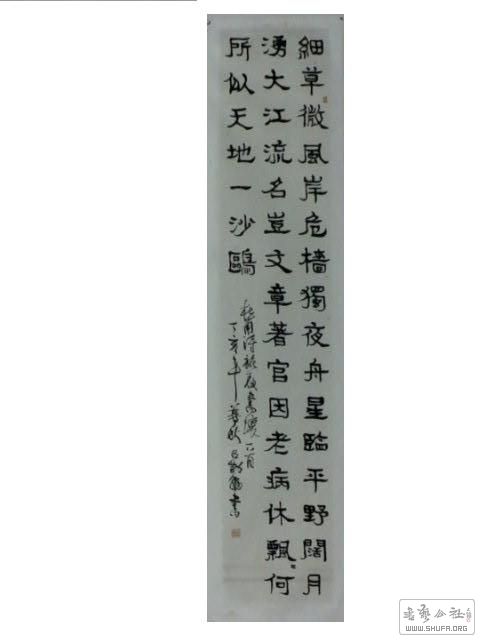 細草微風岸危檣獨夜舟星臨平野闊月
湧大江流名豈文章著官因老病休飄何
所似天地一沙鷗
杜甫詩旅夜書懷一首
丁亥年
书艺公社
WWW.SHUFA.ORG